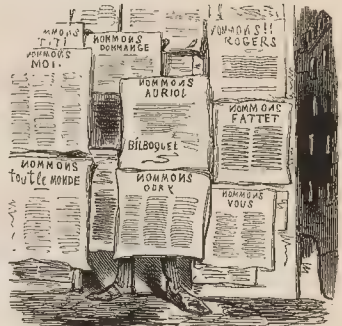 NOMMONS
TITI
NOMMONS
DOMMANGE
NOMMONS!!
ROGERS
NOMMONS
MOI.
NOMMONS
AURIOL
BILBOQUET
NOMMONS
FATTET
NOMMONS
tout le MONDE
NOMMONS
ODRY
NOMMONS
VOUS